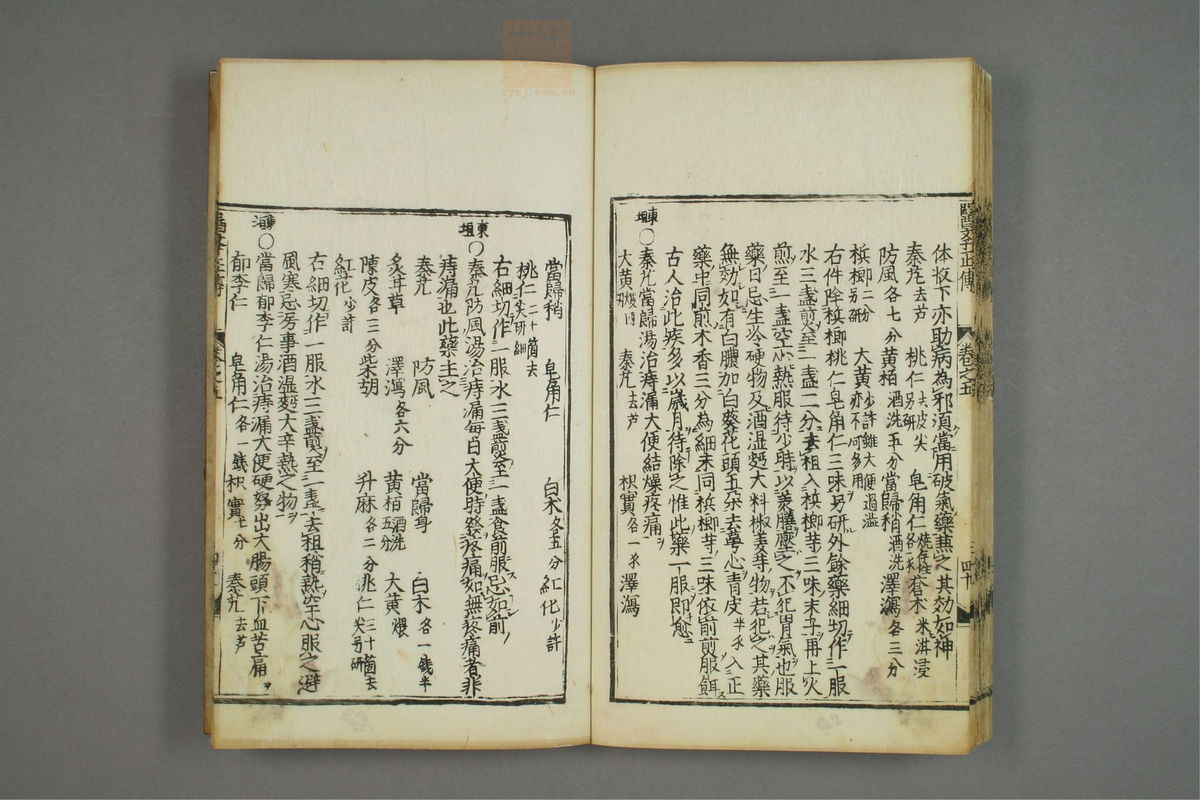 體收下亦助病為邪須當用破氣藥兼之其効如神
秦艽去芦 桃仁去皮尖另研 皂角仁燒存性各一戔 蒼木米泔浸
防風各七分 黄栢酒洗五分 當歸稍酒洗 澤瀉各三分
梹榔二分另研 大黄少許雖大便過澁亦不可多用
右件除梹榔桃仁皂角仁三味另研外餘藥細切作一服
水三盞煎至一盞二分去柤入梹榔等三味末子再上火
煎至一盞空心熱服待少時以美膳壓之不犯胃氣也服
藥日忌生冷硬物及酒湿麪大料椒姜等物若犯之其藥
無効如有白膿加白葵花頭五朶去萼心青皮半戔入正
藥中同煎木香三分為細末同梹榔等三味依前煎服餌
古人治此疾多以歳月待除之惟此藥一服即愈
東垣
○秦艽當歸湯治痔漏大便結燥疼痛
大黄煨四 秦艽去芦 枳實各一戔 澤瀉
醫學正傳
卷之五
四十
當歸稍 皂角仁 白朮各五分 紅花少許
桃仁二十箇去尖研細
右細切作一服水三盞煎至一盞食前服忌如前
東垣
○秦艽防風湯治痔漏每日大便時發疼痛如無疼痛者非
痔漏也此藥主之
秦艽 防風 當歸身 白木各一錢半
炙甘草 澤瀉各六分 黄栢酒洗五分 大黄煨
陳皮各三分 柴胡 升麻各二分 桃仁三十箇去尖另研
紅花少許
右細切作一服水三盞煎至一盞去柤稍熱空心服之避
風寒忌房事酒湿麪大辛熱之物
東垣
○當歸郁李仁湯治痔漏大便硬努出大腸頭下血苦痛
郁李仁 皂角仁各一錢 枳實七分 秦艽去芦